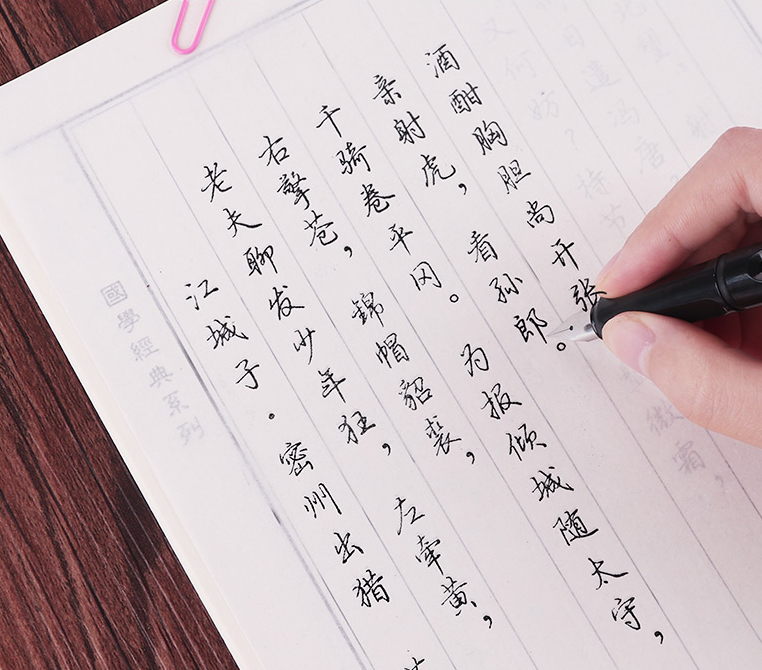 國學經典系列
江城子·密州出猎
老夫聊发少年狂，左牵黄，
右擎苍，錦帽貂裘，
千骑卷平冈。为报倾城随太守，
亲射虎，看孙郎。
酒酣胸胆尚开张。
微霜，
又何妨？持节
日遣冯唐
北望，射